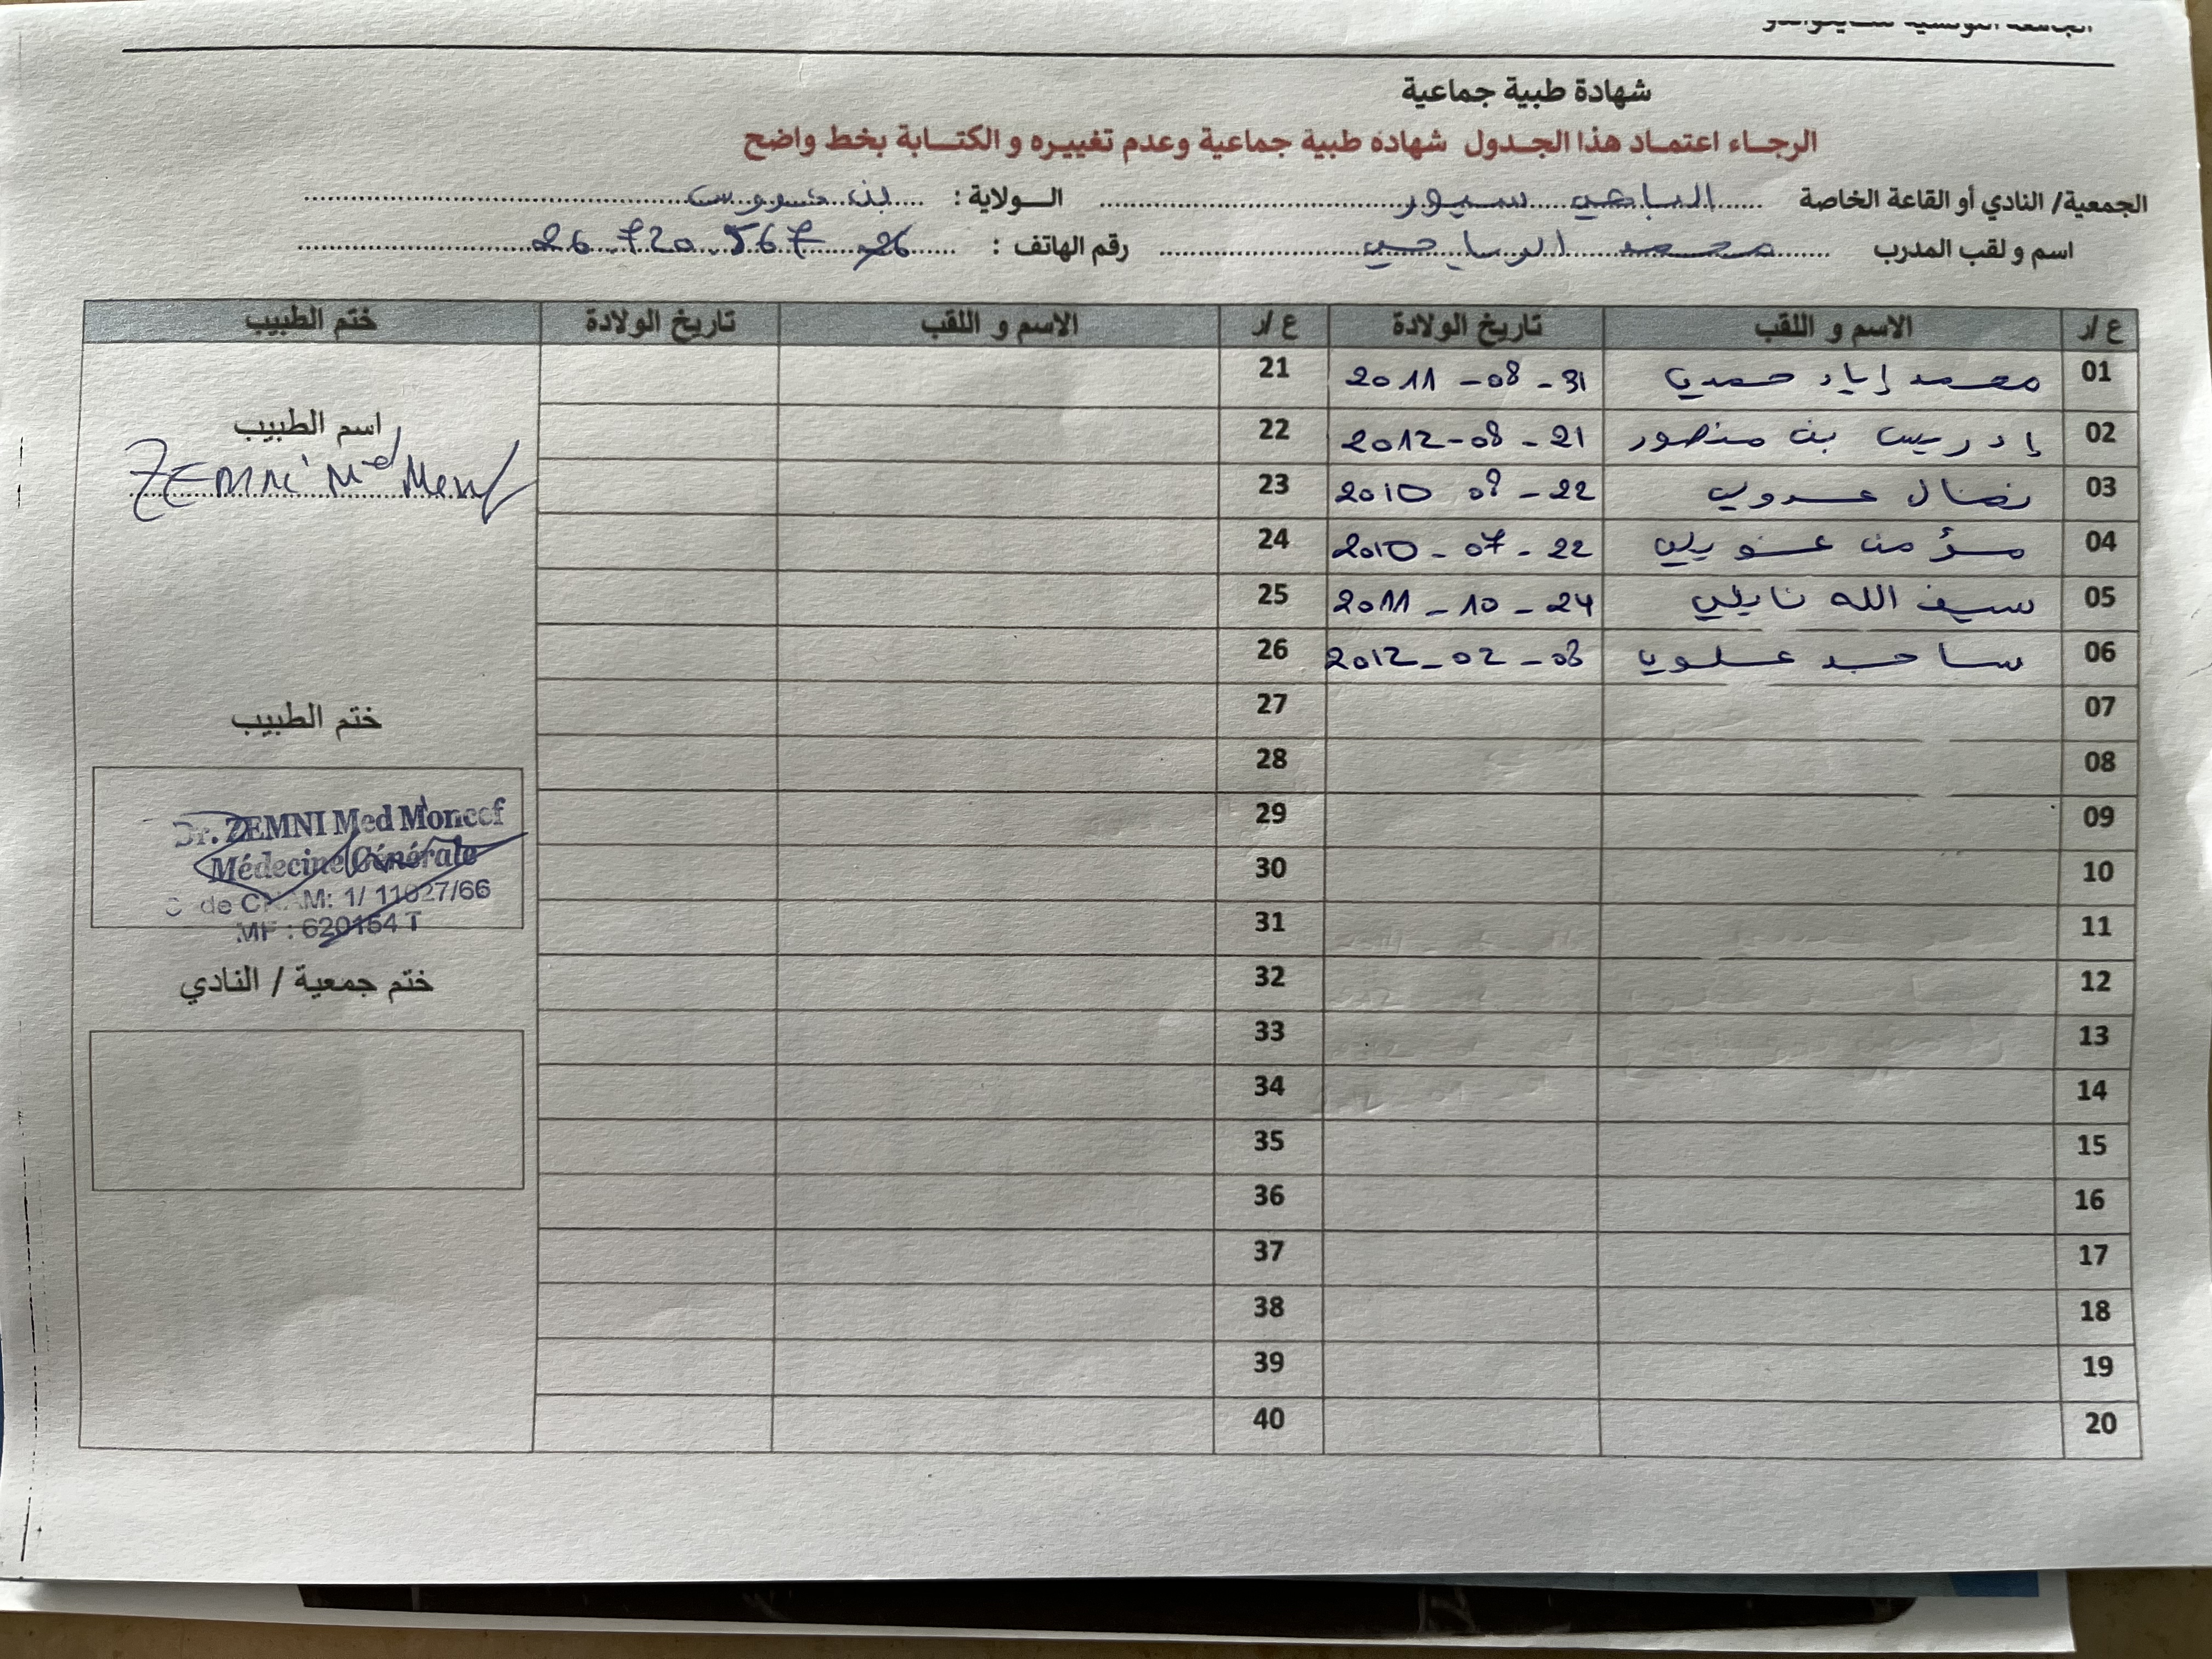 شهادة طبية جماعية
الرجاء اعتماد هذا الجدول شهادة طبية جماعية وعدم تغييره و الكتابة بخط واضح
الجمعية/ النادي أو القاعة الخاصة الولاية : بن عروس
اسم و لقب المدرب محمد الرياحي رقم الهاتف : 26 720 567
ع /ر الاسم و اللقب تاريخ الولادة ع /ر الاسم و اللقب تاريخ الولادة ختم الطبيب
01 محمد إياد حمدي 2011 - 08 - 31 21
02 إدريس بن منصور 2012 - 08 - 21 22
03 نضال عدولي 2010 08 - 22 23
04 مؤمن 2010 - 07 - 22 24
05 سيف الله نايلي 2011 - 10 - 24 25
06 ساجد علوي 2012 - 02 - 08 26
07 27
08 28
09 29
10 30
11 31
12 32
13 33
14 34
15 35
16 36
17 37
18 38
19 39
20 40
اسم الطبيب
ZEMNI Md
ختم الطبيب
Dr. ZEMNI Med Moncef
Médecine Générale
Code CNAM: 1/ 11027/66
MF : 620154 T
ختم جمعية / النادي